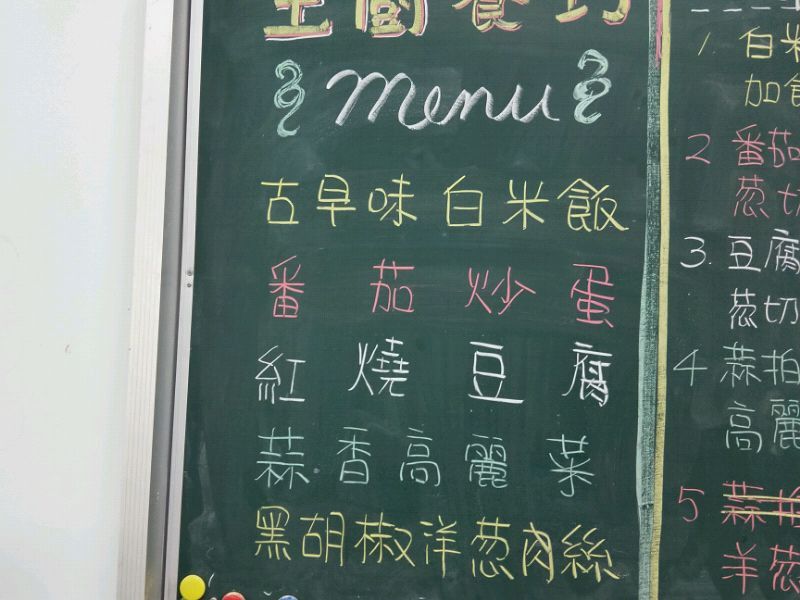 Menu
古早味白米飯
番茄炒蛋
紅燒豆腐
蒜香高麗菜
黑胡椒洋葱肉絲
1. 白米
加食
2 番茄
葱切
3. 豆腐
葱切
4 蒜拍
高麗
5 蒜拍
洋葱